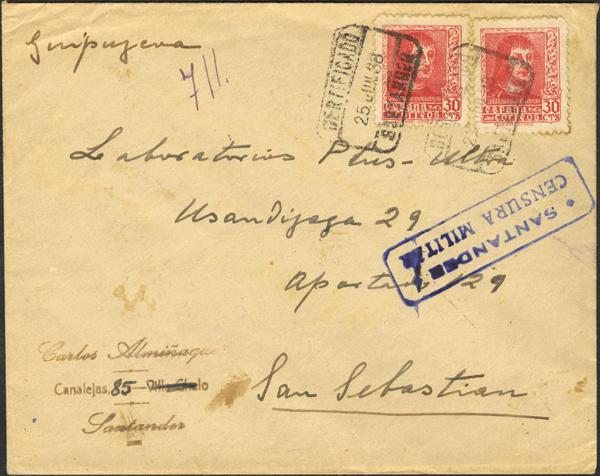 Guipuzcoa
711.
CERTIFICADO
25 JUL 38
SANTANDER
ESPAÑA
CORREOS
30 CTS
ESPAÑA
CORREOS
30 CTS
Laboratorios Plus-Ultra
Usandizaga 29
Apartado 129
San Sebastian
SANTANDER
CENSURA MILITAR
Carlos Almiñaque
Canalejas, 85
Santander